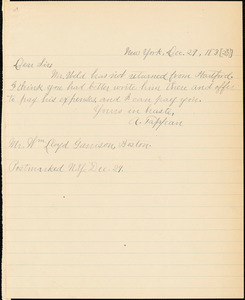 New York. Dec. 29, 183[3]
Dear Sir
Mr. Weld has not returned from Hartford.
I think you had better write him there and offer
to pay his expenses and I can pay you.
Yours in haste,
A. Tappan
Mr. Wm Lloyd Garrison, Boston.
Postmarked N.Y. Dec. 29.